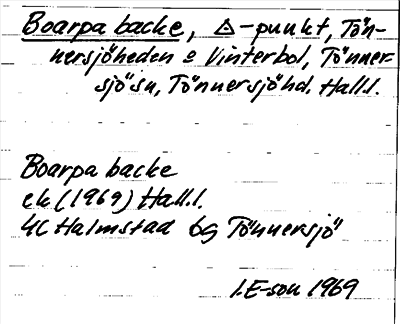 Boarpa backe, △-punkt, Tön-
nersjöheden o Vinterbol, Tönner-
sjö sn, Tönnersjö hd. Hall.l.
Boarpa backe
ek (1969) Hall.l.
4C Halmstad 6g Tönnersjö
I.E-son 1969